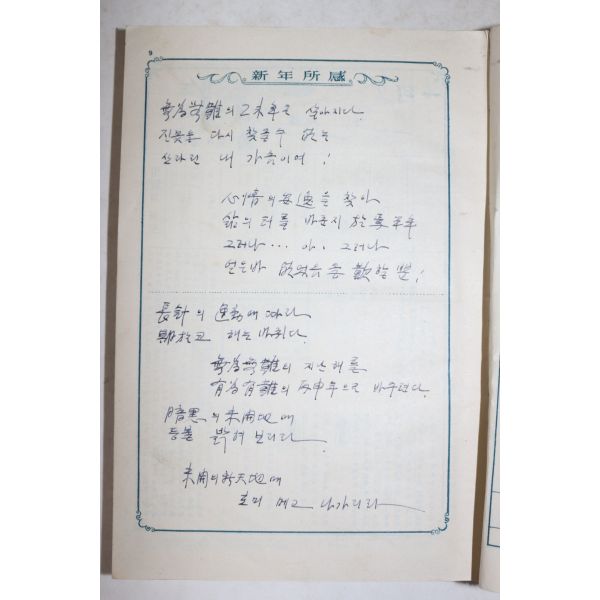 9
新年所感
無為無難의 그 未年로 살아지다.
진봇을 다시 찾을수 없는
쓰라린 내 가슴이여!
心情의 安逸을 찾아
삶의 터를 바꾼지 於焉 半年
그러나... 아, 그러나
얻은바 없었음을 歎할 뿐!
長針의 運動에 따라
期於코 해는 바뀌다.
無為無難의 지난해를
有為有難의 丙申年으로 바꾸련다.
暗黑의 未開地에
등불 밝혀 보리라.
未開의 新天地에
호미 메고 나가리라